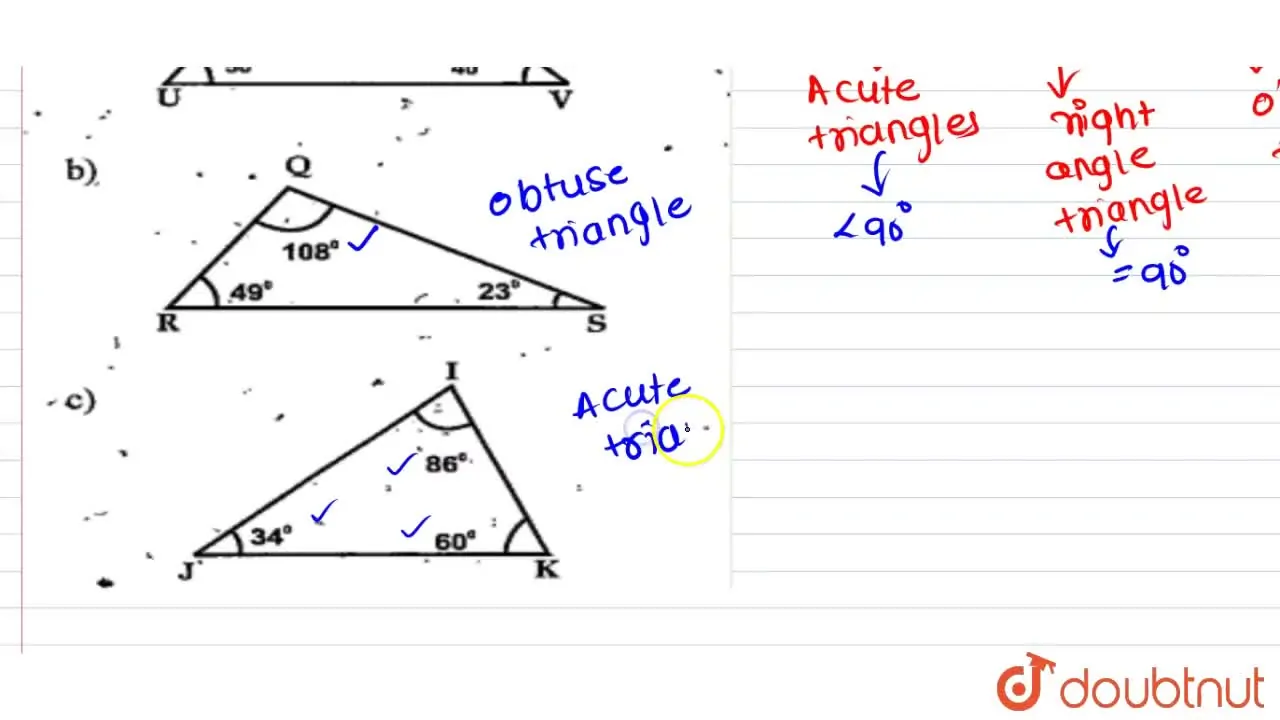 U
V
b)
Q
108°
49°
23°
R
S
obtuse
triangle
c)
I
86°
34°
60°
J
K
Acute
tria
Acute
triangles
< 90°
right
angle
triangle
= 90°
doubtnut